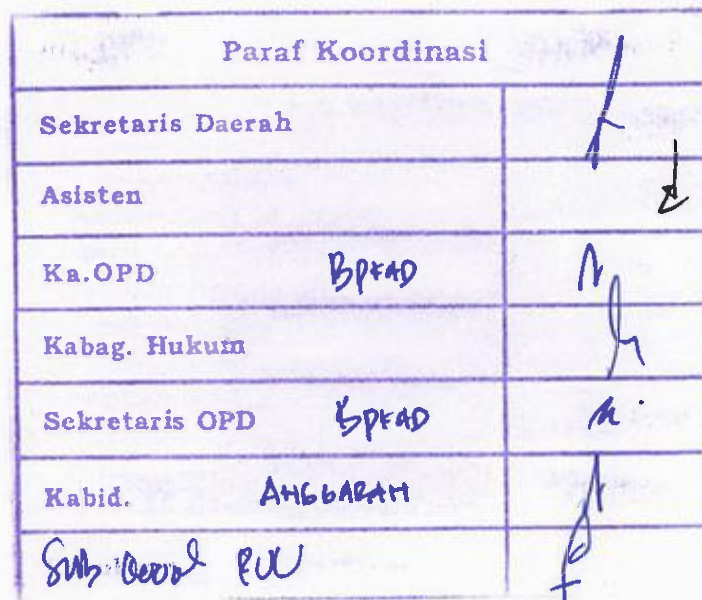 Paraf Koordinasi
Sekretaris Daerah
Asisten
Ka.OPD BPKAD
Kabag. Hukum
Sekretaris OPD BPKAD
Kabid. ANGGARAN
Sub PUU